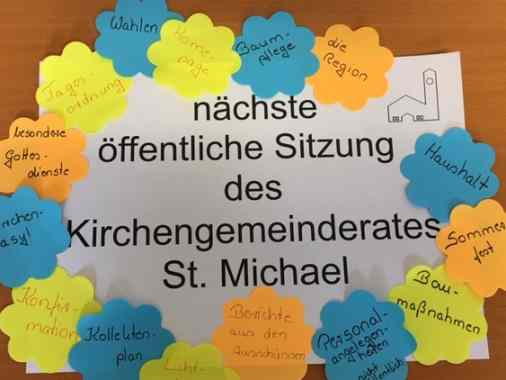 Wahlen
Home-
page
Baum-
pflege
die
Region
Tages-
ordnung
besondere
Gottes-
dienste
nächste
öffentliche Sitzung
des
Kirchengemeinderates
St. Michael
Haushalt
Sommer
fest
Bau-
maßnahmen
Personal-
angelegen-
heiten
nicht
Berichte
aus den
Ausschüssen
Kollekten-
plan
Konfir-
mation
irchen-
asyl